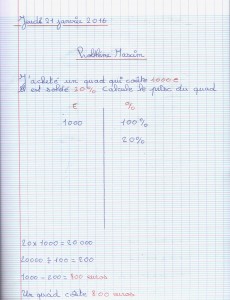 Jeudi 21 janvier 2016
Problème Maxim
J'achète un quad qui coûte 1000 €
Il est soldé 20% Calcule le prix du quad
€ %
1000 100%
20%
20 x 1000 = 20 000
20000 ÷ 100 = 200
1000 - 200 = 800 euros
Un quad coûte 800 euros